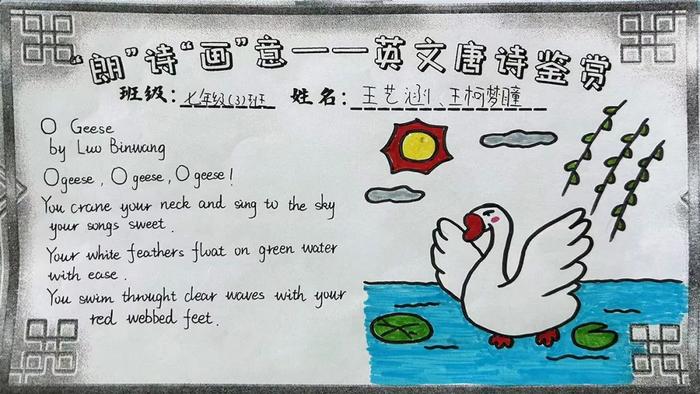 “朗”诗“画”意——英文唐诗鉴赏
班级:七年级(3)班 姓名:王艺涵、王柯梦瞳
O Geese
by Luo Binwang
O geese, O geese, O geese!
You crane your neck and sing to the sky
your songs sweet.
Your white feathers float on green water
with ease.
You swim throught clear waves with your
red webbed feet.